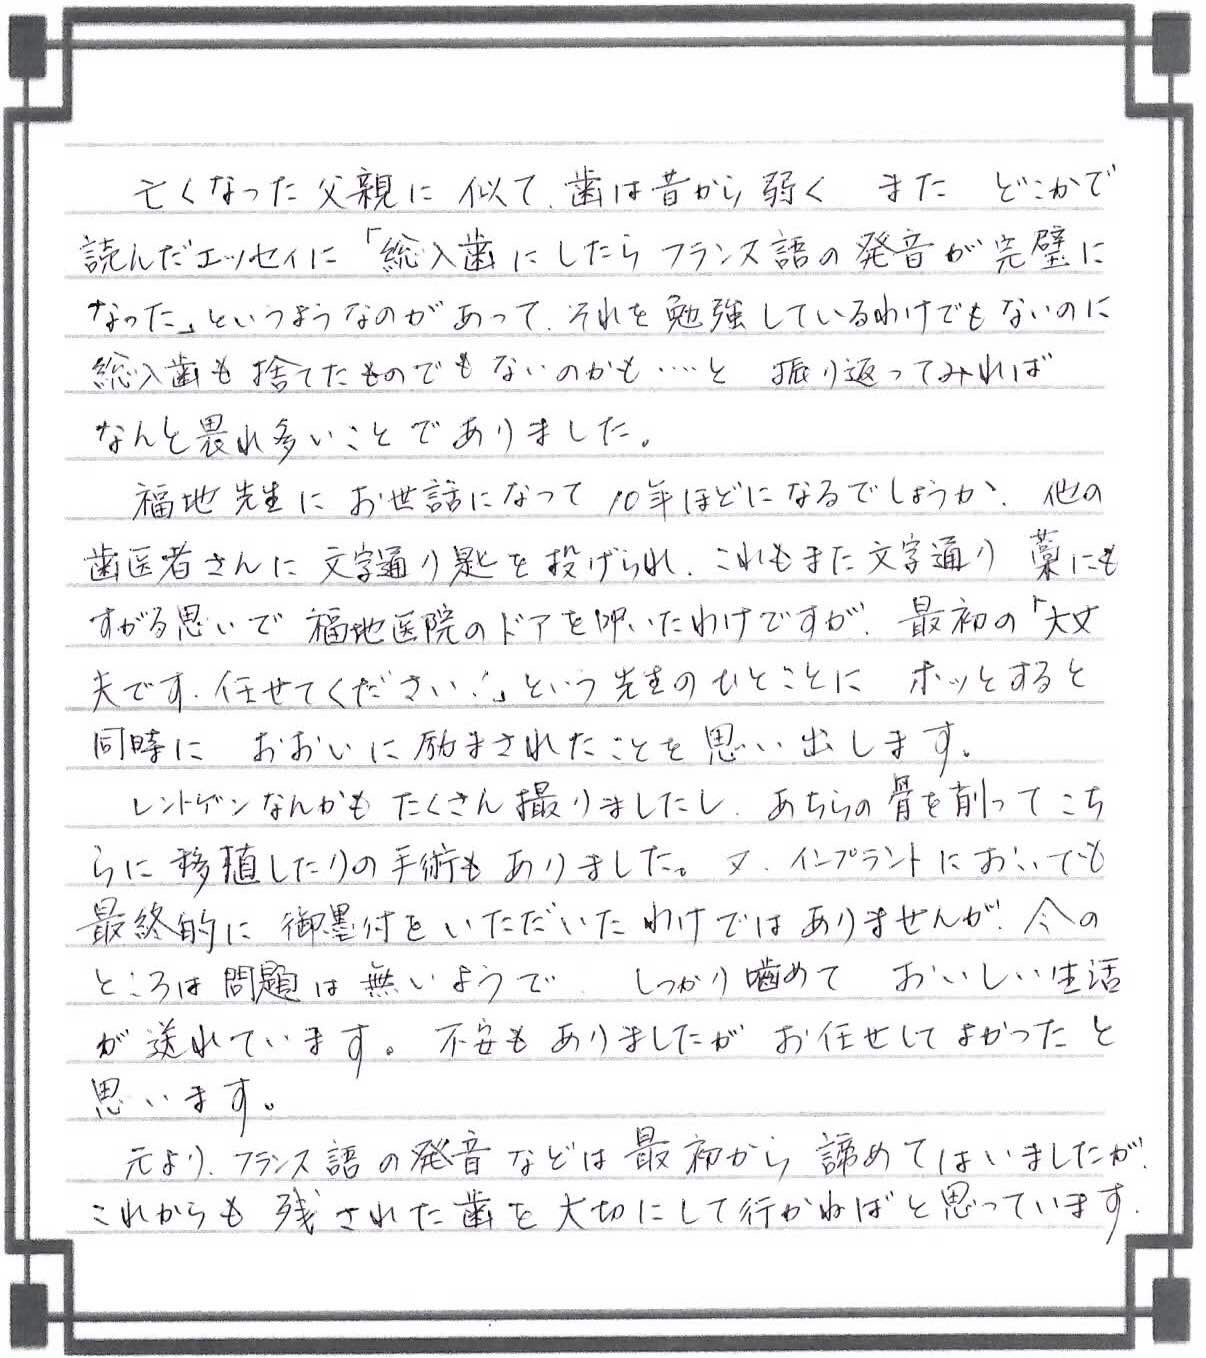 亡くなった父親に似て、歯は昔から弱く　また　どこかで
読んだエッセイに「総入歯にしたらフランス語の発音が完璧に
なった」というようなのがあって、それを勉強しているわけでもないのに
総入歯も捨てたものでもないのかも……と　振り返ってみれば
なんと畏れ多いことでありました。
福地先生に　お世話になって　10年ほどになるでしょうか、他の
歯医者さんに　文字通り匙を投げられ、これもまた文字通り　藁にも
すがる思いで　福地医院のドアを叩いたわけですが、最初の「大丈
夫です、任せてください！」という先生のひとことに　ホッとすると
同時に　おおいに励まされたことを思い出します。
レントゲンなんかも　たくさん撮りましたし、あちらの骨を削ってこち
らに移植したりの手術もありました。又、インプラントにおいても
最終的に　御墨付をいただいたわけではありませんが、今の
ところは問題は無いようで、しっかり噛めて　おいしい生活
が送れています。不安もありましたが　お任せしてよかったと
思います。
元より、フランス語の発音などは最初から諦めてはいましたが、
これからも残された歯を大切にして行かねばと思っています.